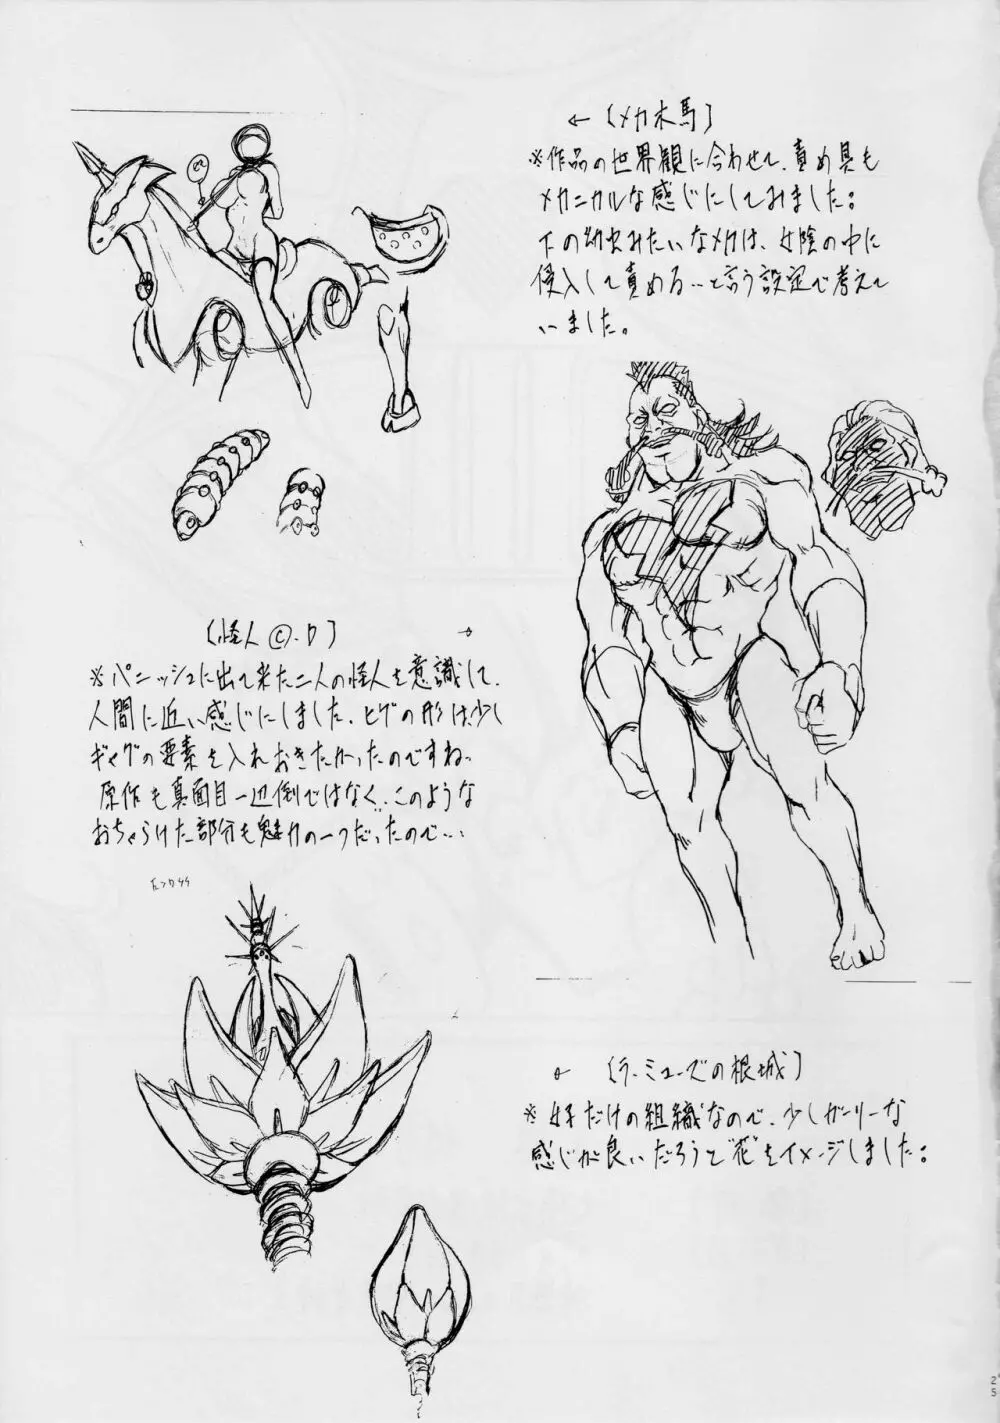 ← 〔メカ木馬〕
※作品の世界観に合わせて、責め具も
メカニカルな感じにしてみました。
下の幼虫みたいなメカは、女陰の中に
侵入して責める…と言う設定で考えて
いました。
〔怪人©・D〕 →
※パニッシュに出て来た二人の怪人を意識して、
人間に近い感じにしました。ヒゲの形は、少し
ギャグの要素を入れておきたかったのですね。
原作も真面目一辺倒ではなく、このような
おちゃらけた部分も魅力の一つだったので…
← 〔ラ・ミューズの根城〕
※女子だけの組織なので、少しガーリーな
感じが良いだろうと“花”をイメージしました。
25